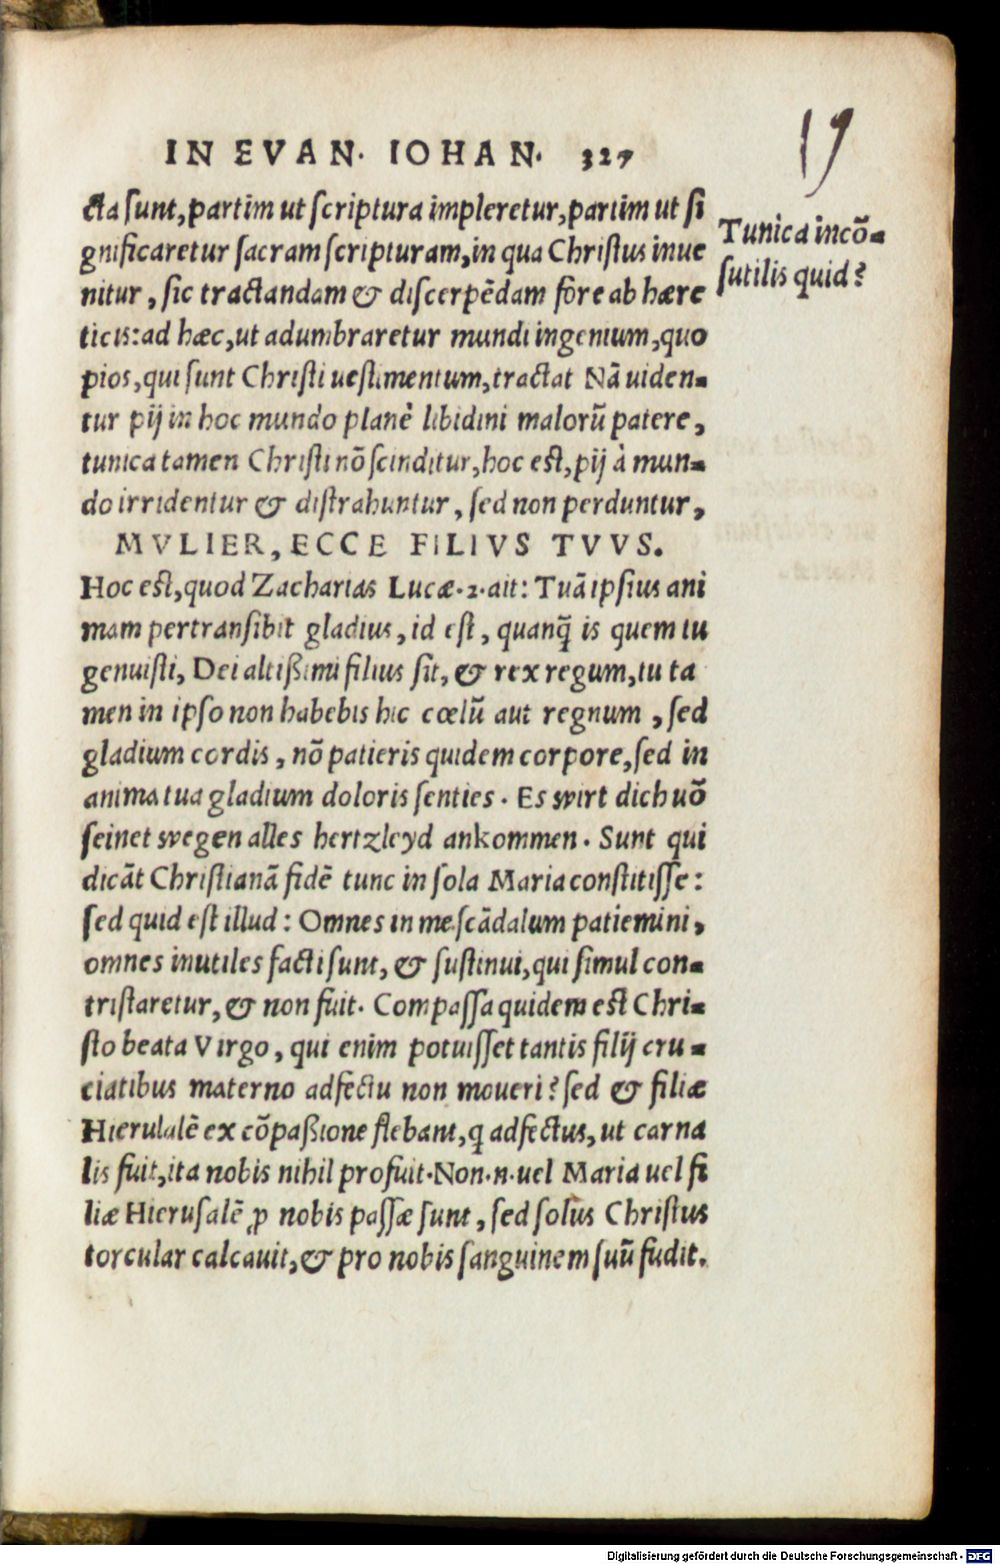 19
IN EVAN. IOHAN. 327
cta sunt, partim ut scriptura impleretur, partim ut si
gnificaretur sacram scripturam, in qua Christus inue
nitur, sic tractandam & discerpẽdam fore ab hære
ticis: ad hæc, ut adumbraretur mundi ingenium, quo
pios, qui sunt Christi uestimentum, tractat Nã uiden-
tur pij in hoc mundo planè libidini malorũ patere,
tunica tamen Christi nõ scinditur, hoc est, pij à mun-
do irridentur & distrahuntur, sed non perduntur,
MVLIER, ECCE FILIVS TVVS.
Hoc est, quod Zacharias Lucæ.2.ait: Tuã ipsius ani
mam pertransibit gladius, id est, quanq̃ is quem tu
genuisti, Dei altißimi filius sit, & rex regum, tu ta
men in ipso non habebis hic cœlũ aut regnum, sed
gladium cordis, nõ patieris quidem corpore, sed in
anima tua gladium doloris senties. Es wirt dich uõ
seinet wegen alles hertzleyd ankommen. Sunt qui
dicãt Christianã fidẽ tunc in sola Maria constitisse:
sed quid est illud: Omnes in me scãdalum patiemini,
omnes inutiles facti sunt, & sustinui, qui simul con-
tristaretur, & non fuit. Compassa quidem est Chri-
sto beata Virgo, qui enim potuisset tantis filij cru-
ciatibus materno adfectu non moueri? sed & filiæ
Hierulalẽ ex cõpaßione flebant, q adfectus, ut carna
lis fuit, ita nobis nihil profuit. Non.n.uel Maria uel fi
liæ Hierusalẽ ꝓ nobis passæ sunt, sed solus Christus
torcular calcauit, & pro nobis sanguinem suũ fudit.
Tunica incõ-
sutilis quid?
Digitalisierung gefördert durch die Deutsche Forschungsgemeinschaft - DFG